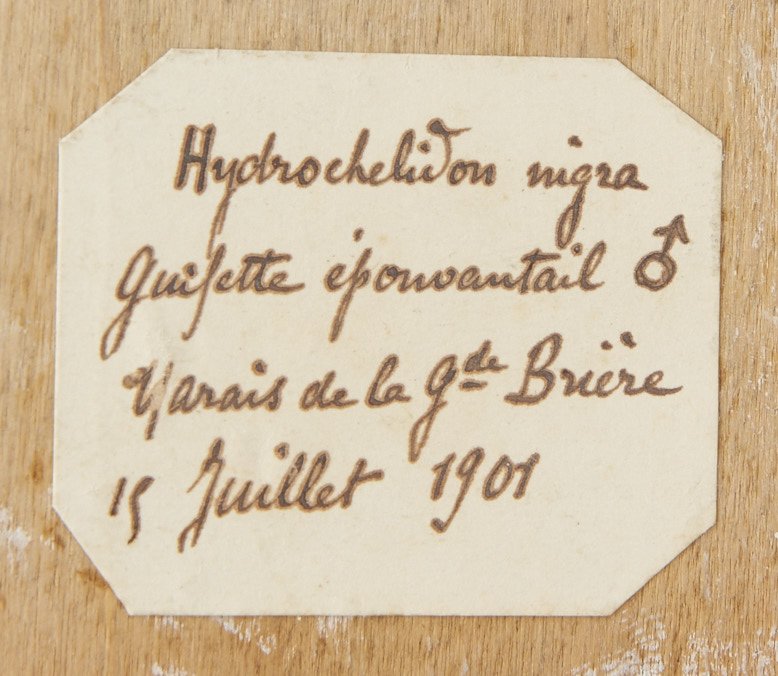 Hydrochelidon nigra
Guifette épouvantail ♂
Marais de la Gde Brière
15 Juillet 1901